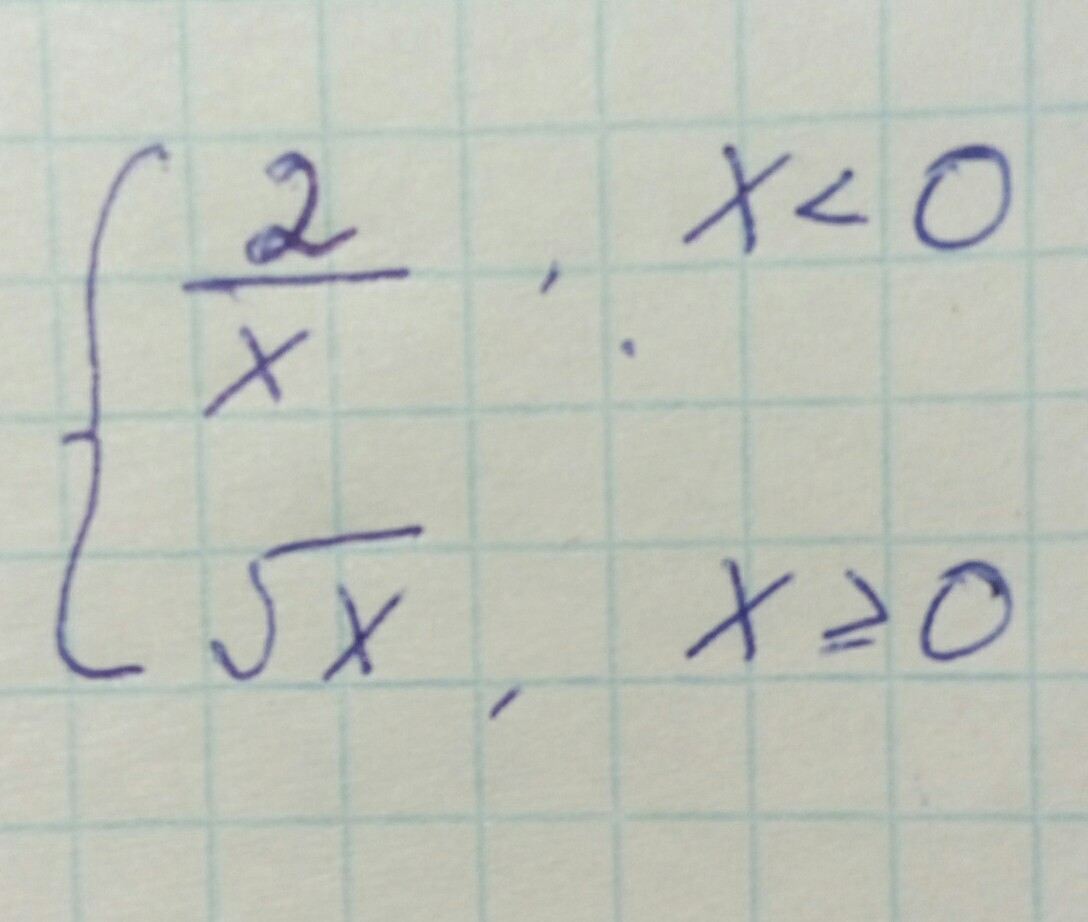 { 2/x , x < 0
√x , x ≥ 0